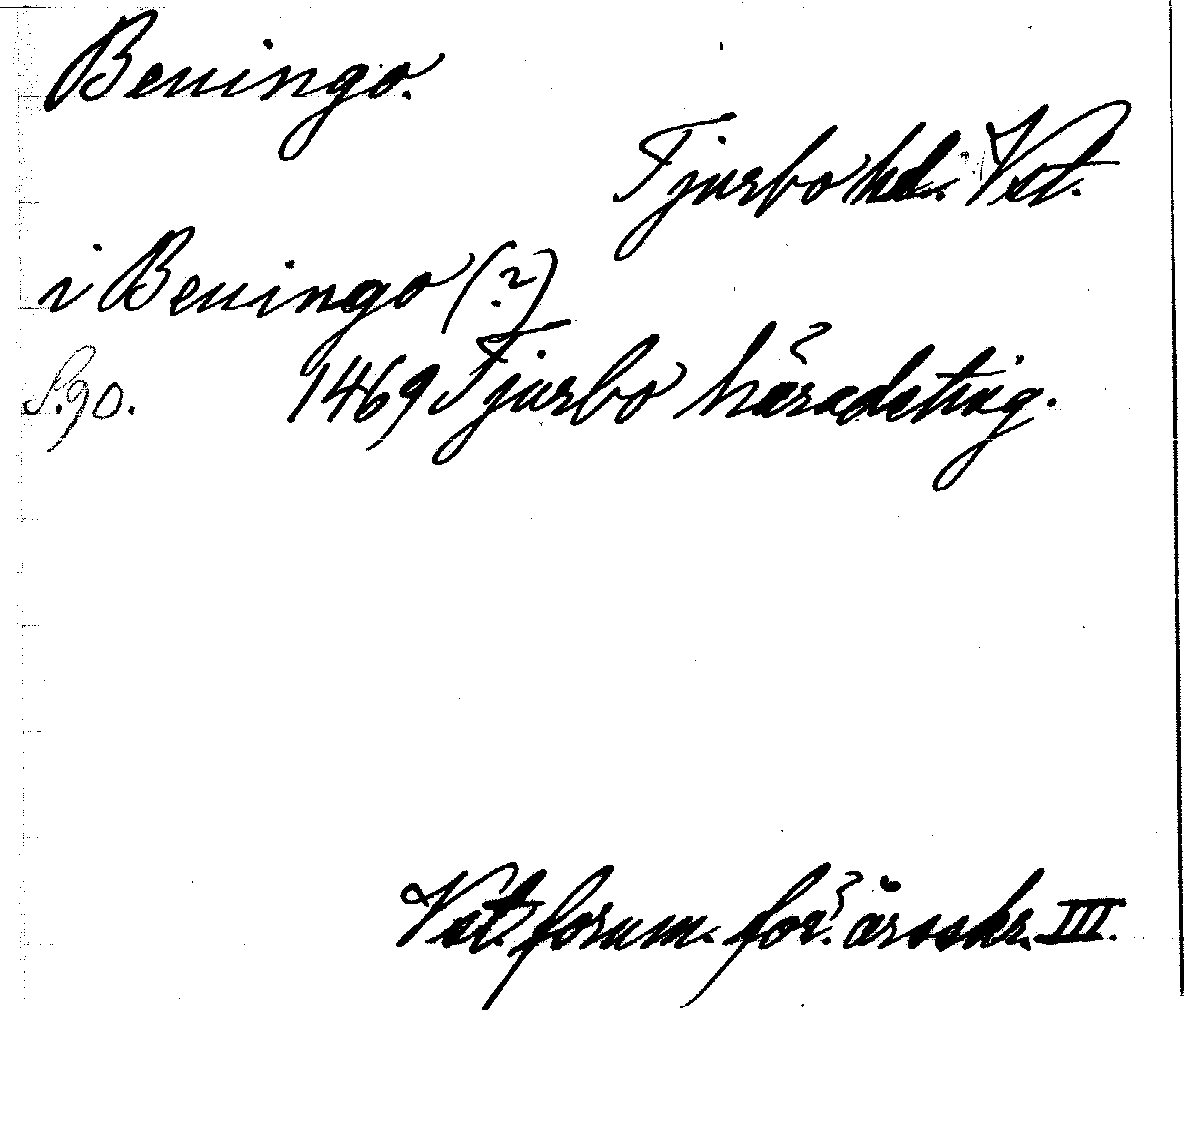 Beningo.
Tjurbo hd. Vst.
i Beningo (?)
S.90. 1469 Tjurbo häradsting.
Vst. fornm. för. årsskr. III.